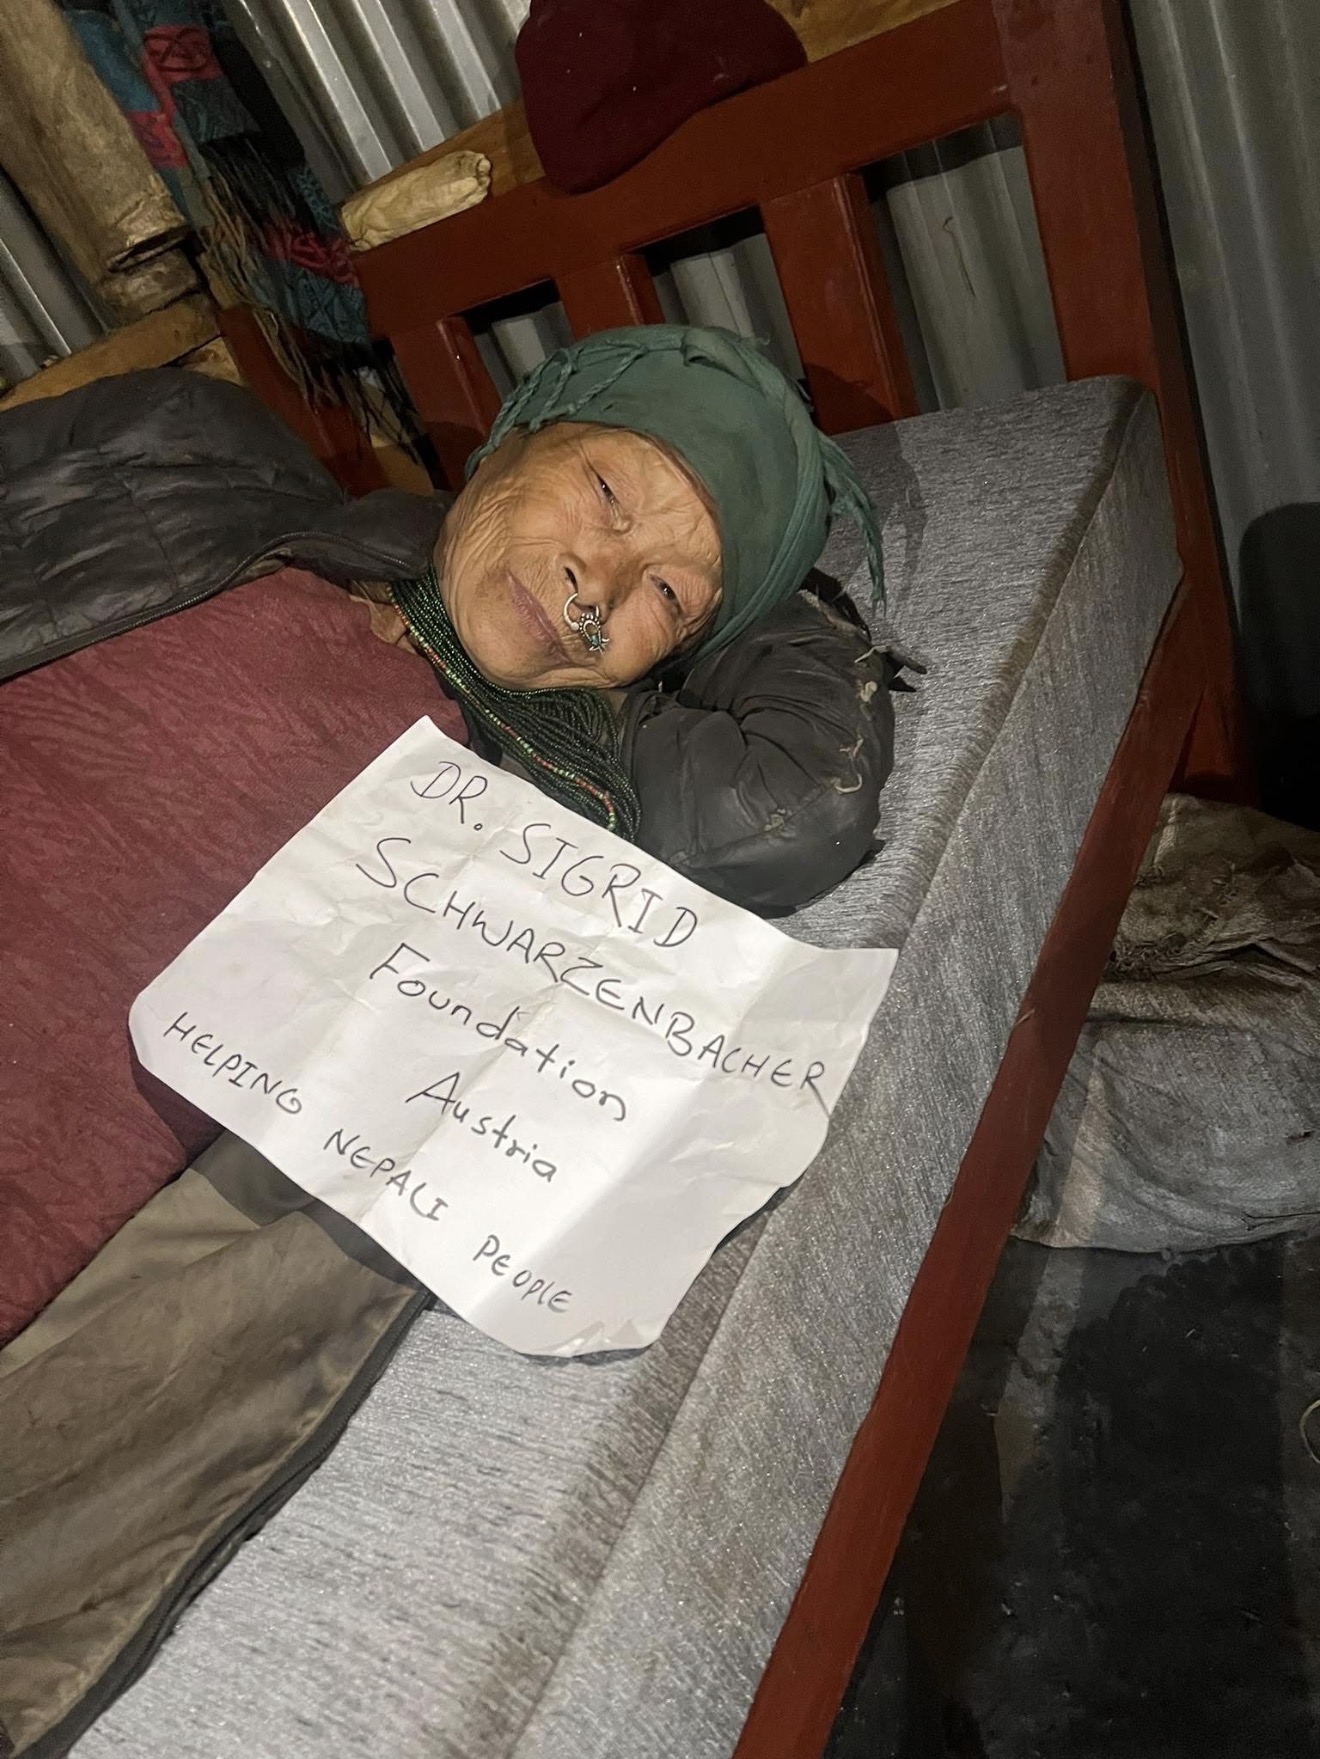 DR. SIGRID
SCHWARZENBACHER
Foundation
Austria
HELPING NEPALI PEOPLE